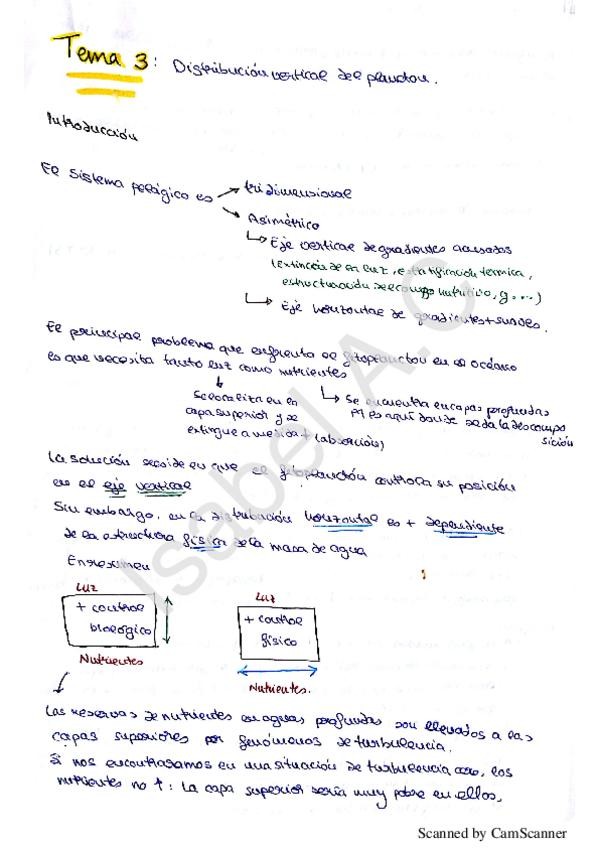 Tema 3: Distribución vertical del plancton.
Introducción
El sistema pelágico es → tridimensional
→ Asimétrico
↳ Eje vertical de gradientes acusados
(extinción de la luz, estratificación térmica,
estructuración del campo nutritivo, g, ...)
↳ Eje horizontal de gradientes + suaves.
El principal problema que enfrenta el fitoplancton en el océano
es que necesita tanto luz como nutrientes
↓ Se localiza en la
capa superior y se
extingue a medida + (absorción)
↳ Se encuentra en capas profundas
pq es aquí donde se da la descompo
sición
La solución reside en que el fitoplancton controla su posición
en el eje vertical
Sin embargo, en la distribución horizontal es + dependiente
de la estructura física de la masa de agua
En resumen
Luz
+ control
biológico
Nutrientes
Luz
+ control
físico
Nutrientes.
Las reservas de nutrientes en aguas profundas son elevados a las
capas superiores por fenómenos de turbulencia.
Si nos encontrasemos en una situación de turbulencia cero, los
nutrientes no ↑: La capa superior sería muy pobre en ellos,
Isabel A.C
Scanned by CamScanner